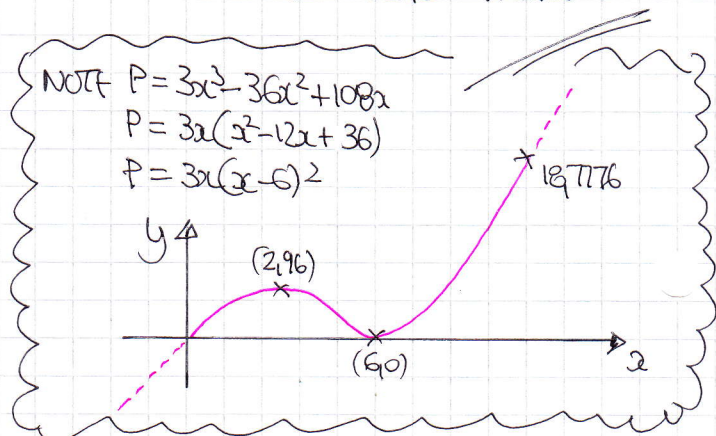 NOTE P = 3x³ - 36x² + 108x
P = 3x(x² - 12x + 36)
P = 3x(x - 6)²
y
18,7776
(2,96)
x
(6,0)